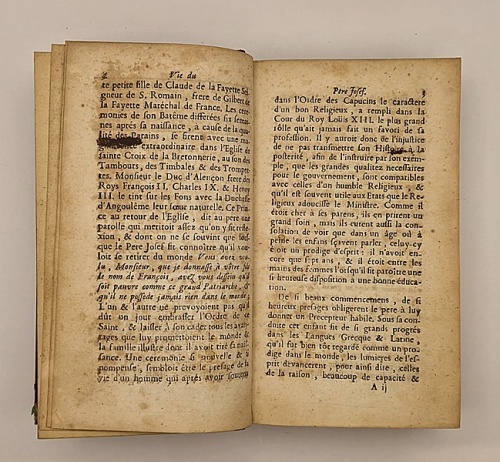 Vie du
te petite fille de Claude de la Fayette Sei-
gneur de S. Romain, frere de Gilbert de
la Fayette Maréchal de France. Les cere-
monies de son Batême differées six semai-
nes aprés sa naissance, à cause de la qua-
lité des Parains, se firent avec une ma-
extraordinaire dans l'Eglise de
sainte Croix de la Bretonnerie, au son des
Tambours, des Timbales & des Trompet-
tes. Monsieur le Duc d'Alençon frere des
Roys François II, Charles IX. & Henry
III. le tint sur les Fons avec la Duchesse
d'Angoulême leur sœur naturelle. Ce Prin-
ce au retour de l'Eglise, dit au pere une
parolle qui meritoit assez qu'on y fit refle-
xion, & dont on ne se souvint que lors-
que le Pere Josef fit connoître qu'il vou-
loit se retirer du monde Vous avez vou-
lu, Monsieur, que je donnasse à vôtre fils
le nom de François, avez dessein qu'il
soit pauvre comme ce grand Patriarche, &
qu'il ne possede jamais rien dans le monde;
L'un & l'autre ne prévoyoient pas qu'il
dût un jour embrasser l'Ordre de ce
Saint, & laisser à son cadet tous les avan-
tages que luy promettoient le monde &
la famille illustre dont il avoit tiré sa nais-
sance. Une ceremonie si nouvelle & si
pompense, sembloit être le presage de la
vie d'un homme qui aprés avoir
Pere Josef. 3
dans l'Ordre des Capucins le caractere
d'un bon Religieux, a rempli dans la
Cour du Roy Loüis XIII. le plus grand
rôlle qu'ait jamais fait un favori de sa
profession. Il y auroit donc de l'injustice
de ne pas transmettre son Histoire à la
posterité, afin de l'instruire par son exem-
ple, que les grandes qualitez necessaires
pour le gouvernement, sont compatibles
avec celles d'un humble Religieux, &
qu'il est souvent utile aux Etats que le Re-
ligieux adoucisse le Ministre. Comme il
étoit cher à ses parens, ils en prirent un
grand soin, mais ils eurent aussi la con-
solation de voir que dans un âge où à
peine les enfans sçavent parler, celuy-cy
étoit un prodige d'esprit: il n'avoit en-
core que sept ans, & il étoit entre les
mains des femmes lorsqu'il fit paroître une
si heureuse disposition à une bonne éduca-
tion.
De si beaux commencemens, de si
heureux presages obligerent le pere à luy
donner un Precepteur habile. Sous sa con-
duite cet enfant fit de si grands progrés
dans les Langues Grecque & Latine,
qu'il fut bien tôt regardé comme un pro-
dige dans le monde, les lumieres de l'es-
prit devancerent, pour ainsi dire, celles
de la raison, beaucoup de capacité &
A ij